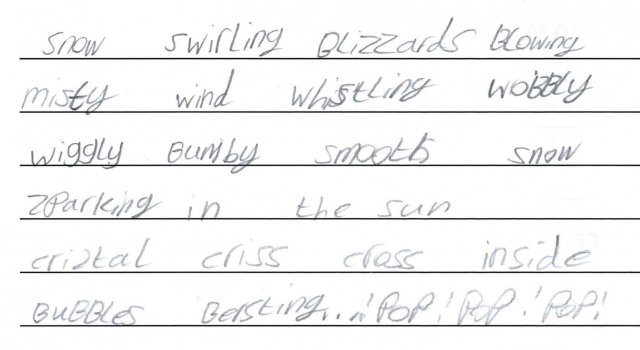 snow swirling Blizzards Blowing
misty wind whistling woBBly
wiggly Bumby smooth snow
zParking in the sun
criztal criss cross inside
BuBBles Bersting...! POP! POP! POP!